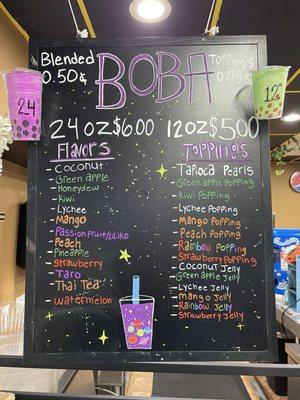 Blended
0.50¢
BOBA
Topping's
0.75¢
24
12
24oz $6.00 12oz $5.00
Flavors
- Coconut
- Green apple
- Honeydew
- Kiwi
- Lychee
- Mango
- Passion fruit/Liliko
- Peach
- Pineapple
- Strawberry
- Taro
- Thai Tea
- Watermelon
Topping's
- Tapioca Pearls
- Green apple Popping
- Kiwi Popping
- Lychee Popping
- Mango Popping
- Peach Popping
- Rainbow Popping
- Strawberry Popping
- Coconut Jelly
- Green apple Jelly
- Lychee Jelly
- Mango Jelly
- Rainbow Jelly
- Strawberry Jelly